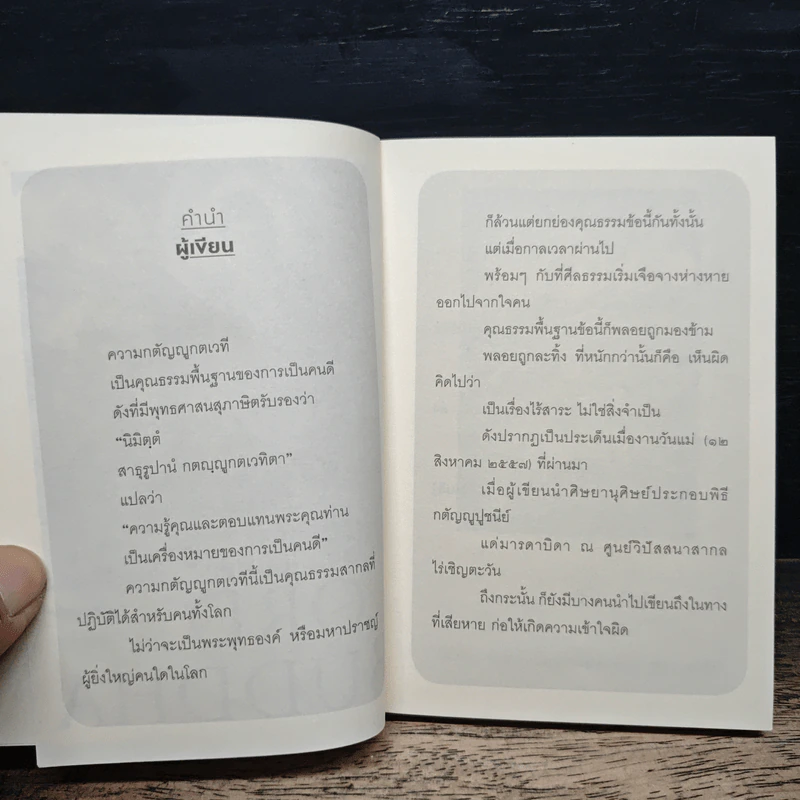 คำนำ
ผู้เขียน
ความกตัญญูกตเวที
เป็นคุณธรรมพื้นฐานของการเป็นคนดี
ดังที่มีพุทธศาสนสุภาษิตรับรองว่า
“นิมิตฺตํ
สาธุรูปานํ กตญฺญูกตเวทิตา”
แปลว่า
“ความรู้คุณและตอบแทนพระคุณท่าน
เป็นเครื่องหมายของการเป็นคนดี”
ความกตัญญูกตเวทีนี้เป็นคุณธรรมสากลที่
ปฏิบัติได้สำหรับคนทั้งโลก
ไม่ว่าจะเป็นพระพุทธองค์ หรือมหาปราชญ์
ผู้ยิ่งใหญ่คนใดในโลก
ก็ล้วนแต่ยกย่องคุณธรรมข้อนี้กันทั้งนั้น
แต่เมื่อกาลเวลาผ่านไป
พร้อมๆ กับที่ศีลธรรมเริ่มเจือจางห่างหาย
ออกไปจากใจคน
คุณธรรมพื้นฐานข้อนี้ก็พลอยถูกมองข้าม
พลอยถูกละทิ้ง ที่หนักกว่านั้นก็คือ เห็นผิด
คิดไปว่า
เป็นเรื่องไร้สาระ ไม่ใช่สิ่งจำเป็น
ดังปรากฏเป็นประเด็นเมื่องานวันแม่ (๑๒
สิงหาคม ๒๕๕๗) ที่ผ่านมา
เมื่อผู้เขียนนำศิษยานุศิษย์ประกอบพิธี
กตัญญูปูชนีย์
แด่มารดาบิดา ณ ศูนย์วิปัสสนาสากล
ไร่เชิญตะวัน
ถึงกระนั้น ก็ยังมีบางคนนำไปเขียนถึงในทาง
ที่เสียหาย ก่อให้เกิดความเข้าใจผิด